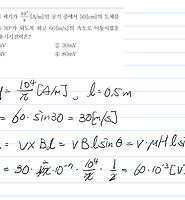 세기가 10⁴/π [A/m]인 공기 중에서 50[cm]의 도체를
30°가 되도록 하고 60[m/s]의 속도로 이동시켰을
유기기전력은?
mV ② 30mV
mV ④ 80mV
= 10⁴/π [A/m], l=0.5m
= 60·sin30 = 30[m/s]
= V×Bl = vBlsinθ = v·μHlsin
= 30· ·10⁻⁷· 10⁴/π · 1/2 = 60·10⁻³[V]